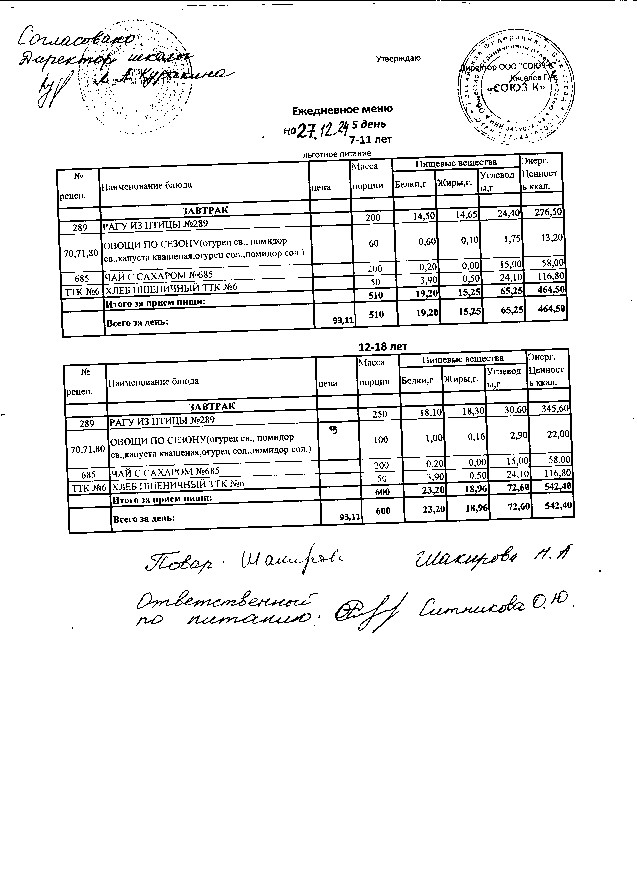 Согласовано
Директор школы
Л.А. Куракина
Утверждаю
Директор ООО "СОЮЗ-К"
Киселев Г.
«СОЮЗ К»
Ежедневное меню
на 27.12.24 5 день
7-11 лет
льготное питание
№ рецеп. Наименование блюда цена Масса порции Пищевые вещества Энерг. Ценность ккал.
Белки,г Жиры,г. Углеводы,г
ЗАВТРАК
289 РАГУ ИЗ ПТИЦЫ №289 200 14,50 14,65 24,40 276,50
70,71,80 ОВОЩИ ПО СЕЗОНУ(огурец св., помидор св.,капуста квашеная,огурец сол.,помидор сол.) 60 0,60 0,10 1,75 13,20
685 ЧАЙ С САХАРОМ №685 200 0,20 0,00 15,00 58,00
ТТК №6 ХЛЕБ ПШЕНИЧНЫЙ ТТК №6 50 3,90 0,50 24,10 116,80
Итого за прием пищи: 510 19,20 15,25 65,25 464,50
Всего за день: 93,11 510 19,20 15,25 65,25 464,50
12-18 лет
№ рецеп. Наименование блюда цена Масса порции Пищевые вещества Энерг. Ценность ккал.
Белки,г Жиры,г. Углеводы,г
ЗАВТРАК
289 РАГУ ИЗ ПТИЦЫ №289 250 18,10 18,30 30,60 345,60
70,71,80 ОВОЩИ ПО СЕЗОНУ(огурец св., помидор св.,капуста квашеная,огурец сол.,помидор сол.) 100 1,00 0,16 2,90 22,00
685 ЧАЙ С САХАРОМ №685 200 0,20 0,00 15,00 58,00
ТТК №6 ХЛЕБ ПШЕНИЧНЫЙ ТТК №6 50 3,90 0,50 24,10 116,80
Итого за прием пищи: 600 23,20 18,96 72,60 542,40
Всего за день: 93,11 600 23,20 18,96 72,60 542,40
Повар. Шакирова Н.А
Ответственный
по питанию: Ситникова О.Ю.